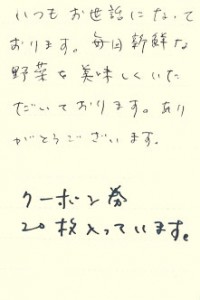 いつもお世話になって
おります。毎回新鮮な
野菜を美味しくいた
だいております。あり
がとうございます。
クーポン券
20枚入っています。